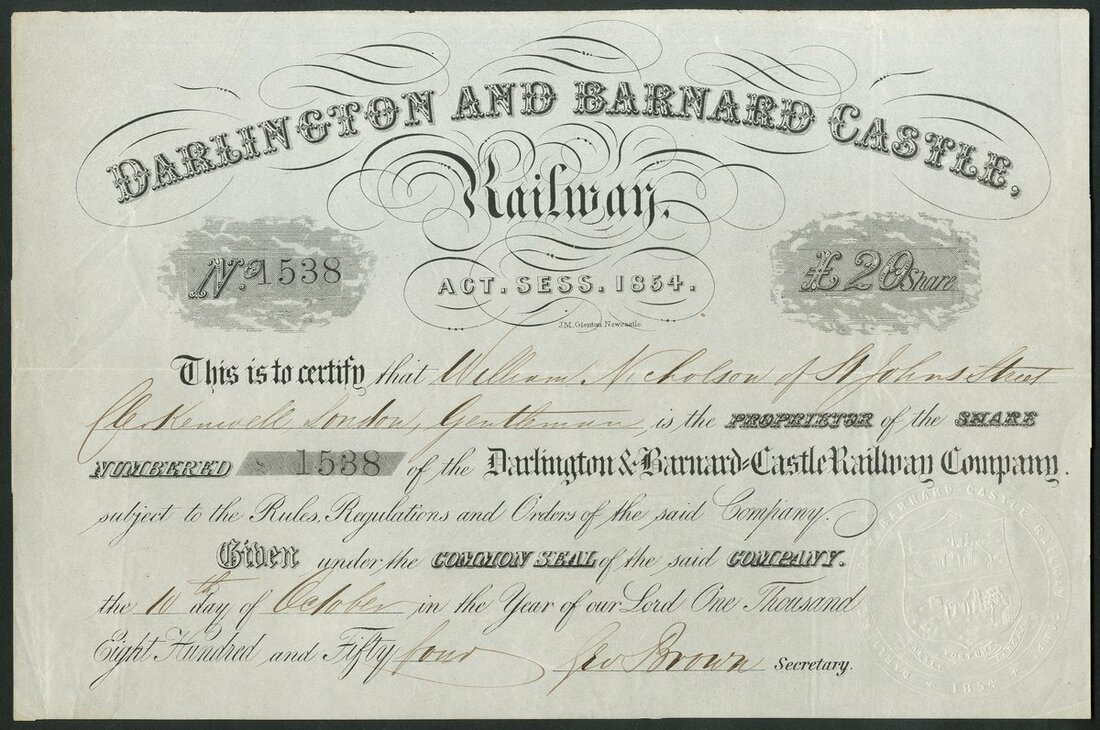 DARLINGTON AND BARNARD CASTLE,
Railway.
No. 1538
ACT. SESS. 1854.
£20 Share
J.M. Glenton Newcastle.
This is to certify that William Nicholson of St Johns Street
Clerkenwell London, Gentleman, is the PROPRIETOR of the SHARE
NUMBERED 1538 of the Darlington & Barnard=Castle Railway Company.
subject to the Rules, Regulations and Orders of the said Company.
Given under the COMMON SEAL of the said COMPANY.
the 10th day of October in the Year of our Lord One Thousand
Eight Hundred and Fifty four Geo Brown Secretary.
1854